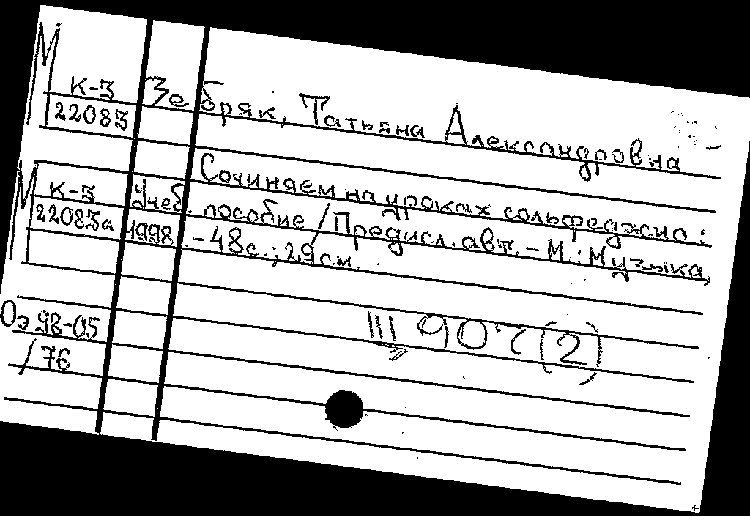 М
К-3
22083
Зебряк, Татьяна Александровна
Сочиняем на уроках сольфеджио:
М
К-3
22083а
Учеб. пособие / Предисл. авт. - М.: Музыка,
1998. - 48с.; 29см.
Оэ 98-05
/76
III 907 (2)